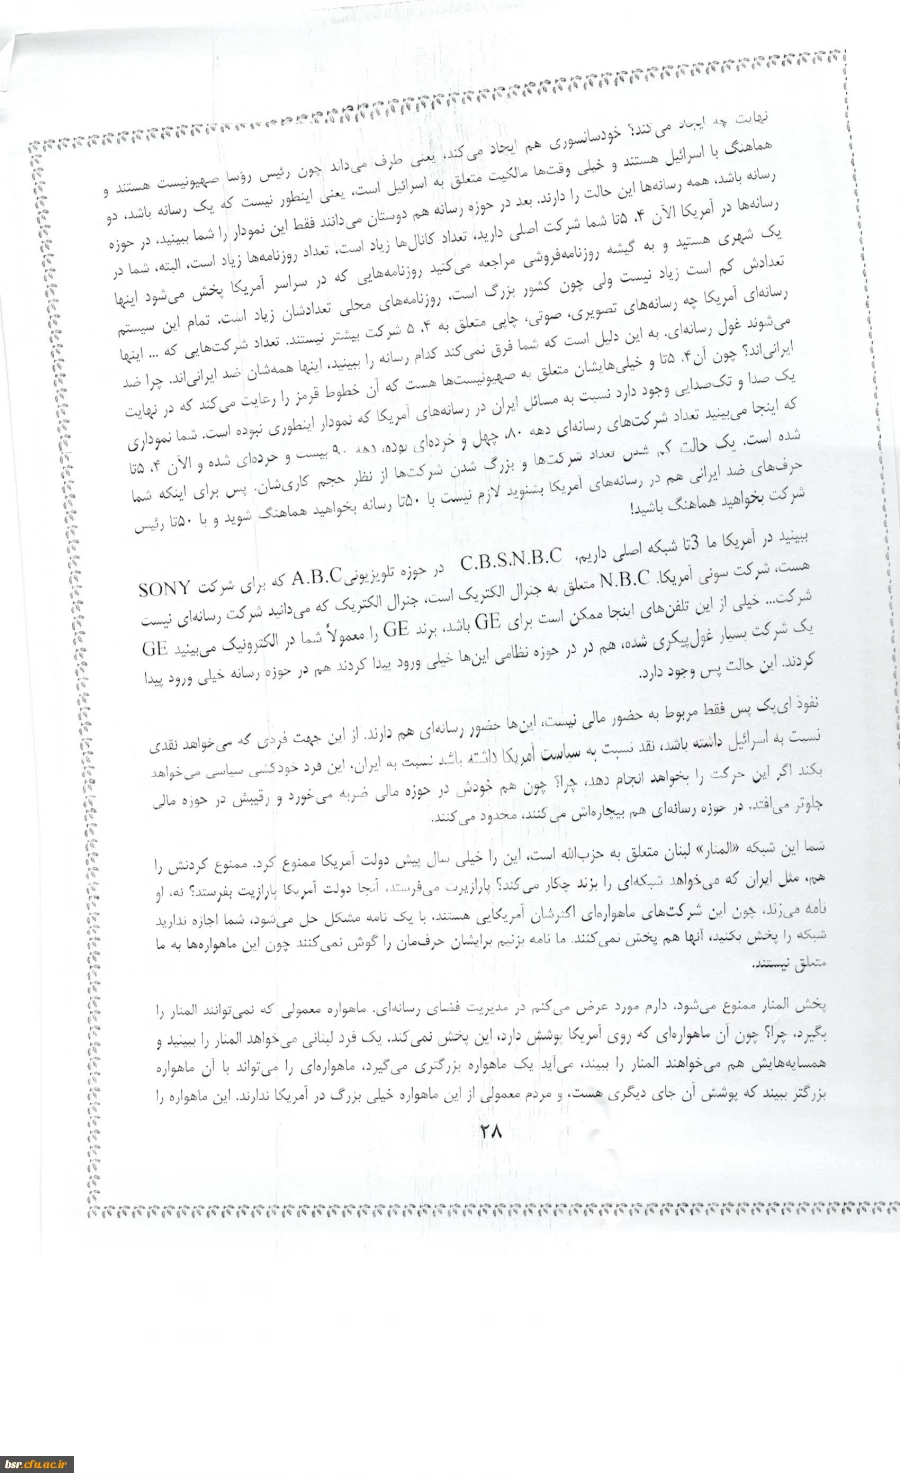 نهایت چه ایجاد می‌کند؟ خودسانسوری هم ایجاد می‌کند، یعنی طرف می‌داند چون رئیس رؤسا صهیونیست هستند و
هماهنگ با اسرائیل هستند و خیلی وقت‌ها مالکیت متعلق به اسرائیل است، یعنی اینطور نیست که یک رسانه باشد، دو
رسانه باشد، همه رسانه‌ها این حالت را دارند. بعد در حوزه رسانه هم دوستان می‌دانند فقط این نمودار را شما ببینید، در حوزه
رسانه‌ها در آمریکا الآن ۴، ۵تا شما شرکت اصلی دارید، تعداد کانال‌ها زیاد است، تعداد روزنامه‌ها زیاد است، البته، شما در
یک شهری هستید و به گیشه روزنامه‌فروشی مراجعه می‌کنید روزنامه‌هایی که در سراسر آمریکا پخش می‌شود اینها
تعدادش کم است زیاد نیست ولی چون کشور بزرگ است، روزنامه‌های محلی تعدادشان زیاد است. تمام این سیستم
رسانه‌ای آمریکا چه رسانه‌های تصویری، صوتی، چاپی متعلق به ۴، ۵ شرکت بیشتر نیستند. تعداد شرکت‌هایی که ... اینها
می‌شوند غول رسانه‌ای. به این دلیل است که شما فرق نمی‌کند کدام رسانه را ببینید، اینها همه‌شان ضد ایرانی‌اند. چرا ضد
ایرانی‌اند؟ چون آن۴، ۵تا و خیلی‌هایشان متعلق به صهیونیست‌ها هست که آن خطوط قرمز را رعایت می‌کند که در نهایت
یک صدا و تک‌صدایی وجود دارد نسبت به مسائل ایران در رسانه‌های آمریکا که نمودار اینطوری نبوده است. شما نموداری
که اینجا می‌بینید تعداد شرکت‌های رسانه‌ای دهه ۸۰، چهل و خرده‌ای بوده، دهه ۹۰ بیست و خرده‌ای شده و الآن ۴، ۵تا
شده است. یک حالت کم شدن تعداد شرکت‌ها و بزرگ شدن شرکت‌ها از نظر حجم کاری‌شان. پس برای اینکه شما
حرف‌های ضد ایرانی هم در رسانه‌های آمریکا بشنوید لازم نیست با ۵۰تا رسانه بخواهید هماهنگ شوید و با ۵۰تا رئیس
شرکت بخواهید هماهنگ باشید!
ببینید در آمریکا ما 3تا شبکه اصلی داریم، C.B.S.N.B.C در حوزه تلویزیونی A.B.C که برای شرکت SONY
هست، شرکت سونی آمریکا. N.B.C متعلق به جنرال الکتریک است، جنرال الکتریک که می‌دانید شرکت رسانه‌ای نیست
شرکت... خیلی از این تلفن‌های اینجا ممکن است برای GE باشد، برند GE را معمولاً شما در الکترونیک می‌بینید GE
یک شرکت بسیار غول‌پیکری شده، هم در در حوزه نظامی این‌ها خیلی ورود پیدا کردند هم در حوزه رسانه خیلی ورود پیدا
کردند. این حالت پس وجود دارد.
نفوذ ای‌پک پس فقط مربوط به حضور مالی نیست، این‌ها حضور رسانه‌ای هم دارند. از این جهت فردی که می‌خواهد نقدی
نسبت به اسرائیل داشته باشد، نقد نسبت به سیاست آمریکا داشته باشد نسبت به ایران، این فرد خودکشی سیاسی می‌خواهد
بکند اگر این حرکت را بخواهد انجام دهد، چرا؟ چون هم خودش در حوزه مالی ضربه می‌خورد و رقیبش در حوزه مالی
جلوتر می‌افتد. در حوزه رسانه‌ای هم بیچاره‌اش می‌کنند، محدود می‌کنند.
شما این شبکه «المنار» لبنان متعلق به حزب‌الله است، این را خیلی سال پیش دولت آمریکا ممنوع کرد. ممنوع کردنش را
هم، مثل ایران که می‌خواهد شبکه‌ای را بزند چکار می‌کند؟ پارازیت می‌فرستد، آنجا دولت آمریکا پارازیت بفرستد؟ نه، او
نامه می‌زند، چون این شرکت‌های ماهواره‌ای اکثرشان آمریکایی هستند، با یک نامه مشکل حل می‌شود، شما اجازه ندارید
شبکه را پخش بکنید، آنها هم پخش نمی‌کنند. ما نامه بزنیم برایشان حرف‌مان را گوش نمی‌کنند چون این ماهواره‌ها به ما
متعلق نیستند.
پخش المنار ممنوع می‌شود، دارم مورد عرض می‌کنم در مدیریت فضای رسانه‌ای. ماهواره معمولی که نمی‌توانند المنار را
بگیرد. چرا؟ چون آن ماهواره‌ای که روی آمریکا پوشش دارد، این پخش نمی‌کند. یک فرد لبنانی می‌خواهد المنار را ببیند و
همسایه‌هایش هم می‌خواهند المنار را ببیند، می‌آید یک ماهواره بزرگتری می‌گیرد، ماهواره‌ای را می‌تواند با آن ماهواره
بزرگتر ببیند که پوشش آن جای دیگری هست، و مردم معمولی از این ماهواره خیلی بزرگ در آمریکا ندارند. این ماهواره را
۲۸
bsr.cfu.ac.ir